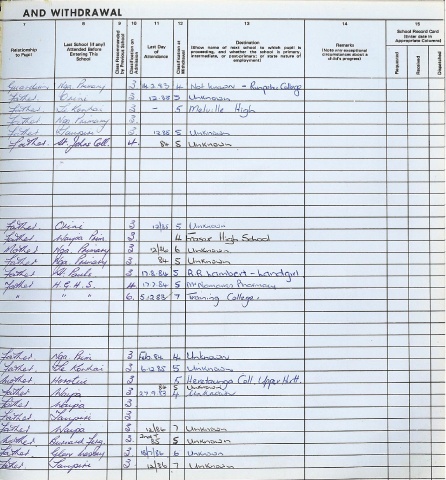 AND WITHDRAWAL
7 8 9 10 11 12 13 14 15
Relationship to Pupil
Last School (if any) Attended Before Entering This School
Classification on Admission
Last Day of Attendance
Destination
(Show name of next school to which pupil is proceeding, and whether the school is primary, intermediate, or post-primary; or state nature of employment)
Remarks
(Note any exceptional circumstances about a child's progress)
School Record Card
(Enter date in Appropriate Column)
Requested
Received
Dispatched
Guardian Nga. Primary 3 4 Not known - College
Father Orini 3 12.85 5 Unknown
Father Te Kauhai 3 - 5 Melville High
Father Nga Primary 3
Father Tauperi 3 12.85 5 Unknown
Father St. Johns Coll. 4 84 5 Unknown
Father Orini 3 12/85 5 Unknown
Father Waipa Prim 3 4 Fraser High School
Mother Nga Primary 3 12/86 6 Unknown
Father Nga. Primary 3 84 5 Unknown
Father St. Pauls 3 17.8.84 5 A.R Lambert - Landgirl
Father H.G.H.S. 4 17.7.84 5 McNamaras Pharmacy
" " " 6 5.12.83 7 Training College.
Father Nga. Prim 3 Feb.84 4 Unknown
Father Te Kauhai 3 6.12.85 5 Unknown
Mother 3 5 Heretaunga Coll. Upper Hutt.
84 5 Unknown
Father Waipa 3 27.9.83 4 Unknown
Father Waipa 3
Father Tauperi 3
Father Waipa 3 12/86 7 Unknown
Mother Bernard Ferg. 3 85 5 Unknown
Father Glen Massey 3 6 Unknown
Father Tauperi 3 12/86 7 Unknown